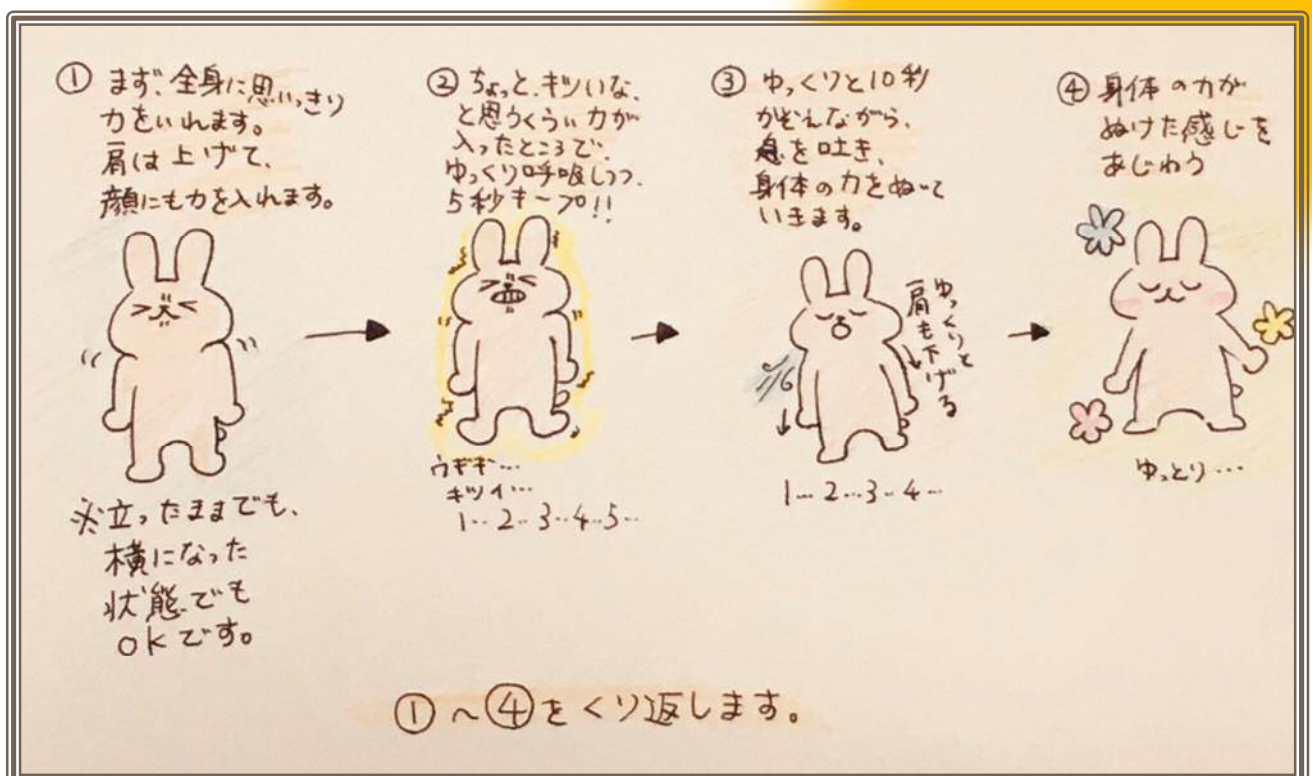 ① まず、全身に思いっきり
力をいれます。
肩は上げて、
顔にも力を入れます。
※立ったままでも、
横になった
状態でも
OKです。
② ちょっと、キツいな、
と思うくらい力が
入ったところで、
ゆっくり呼吸しつつ、
5秒キープ!!
ウギギ…
キツイ…
1…2…3…4…5…
③ ゆっくりと10秒
かぞえながら、
息を吐き、
身体の力をぬいて
いきます。
ゆっくりと
肩も下げる
1…2…3…4…
④ 身体の力が
ぬけた感じを
あじわう
ゆっとり…
①〜④をくり返します。